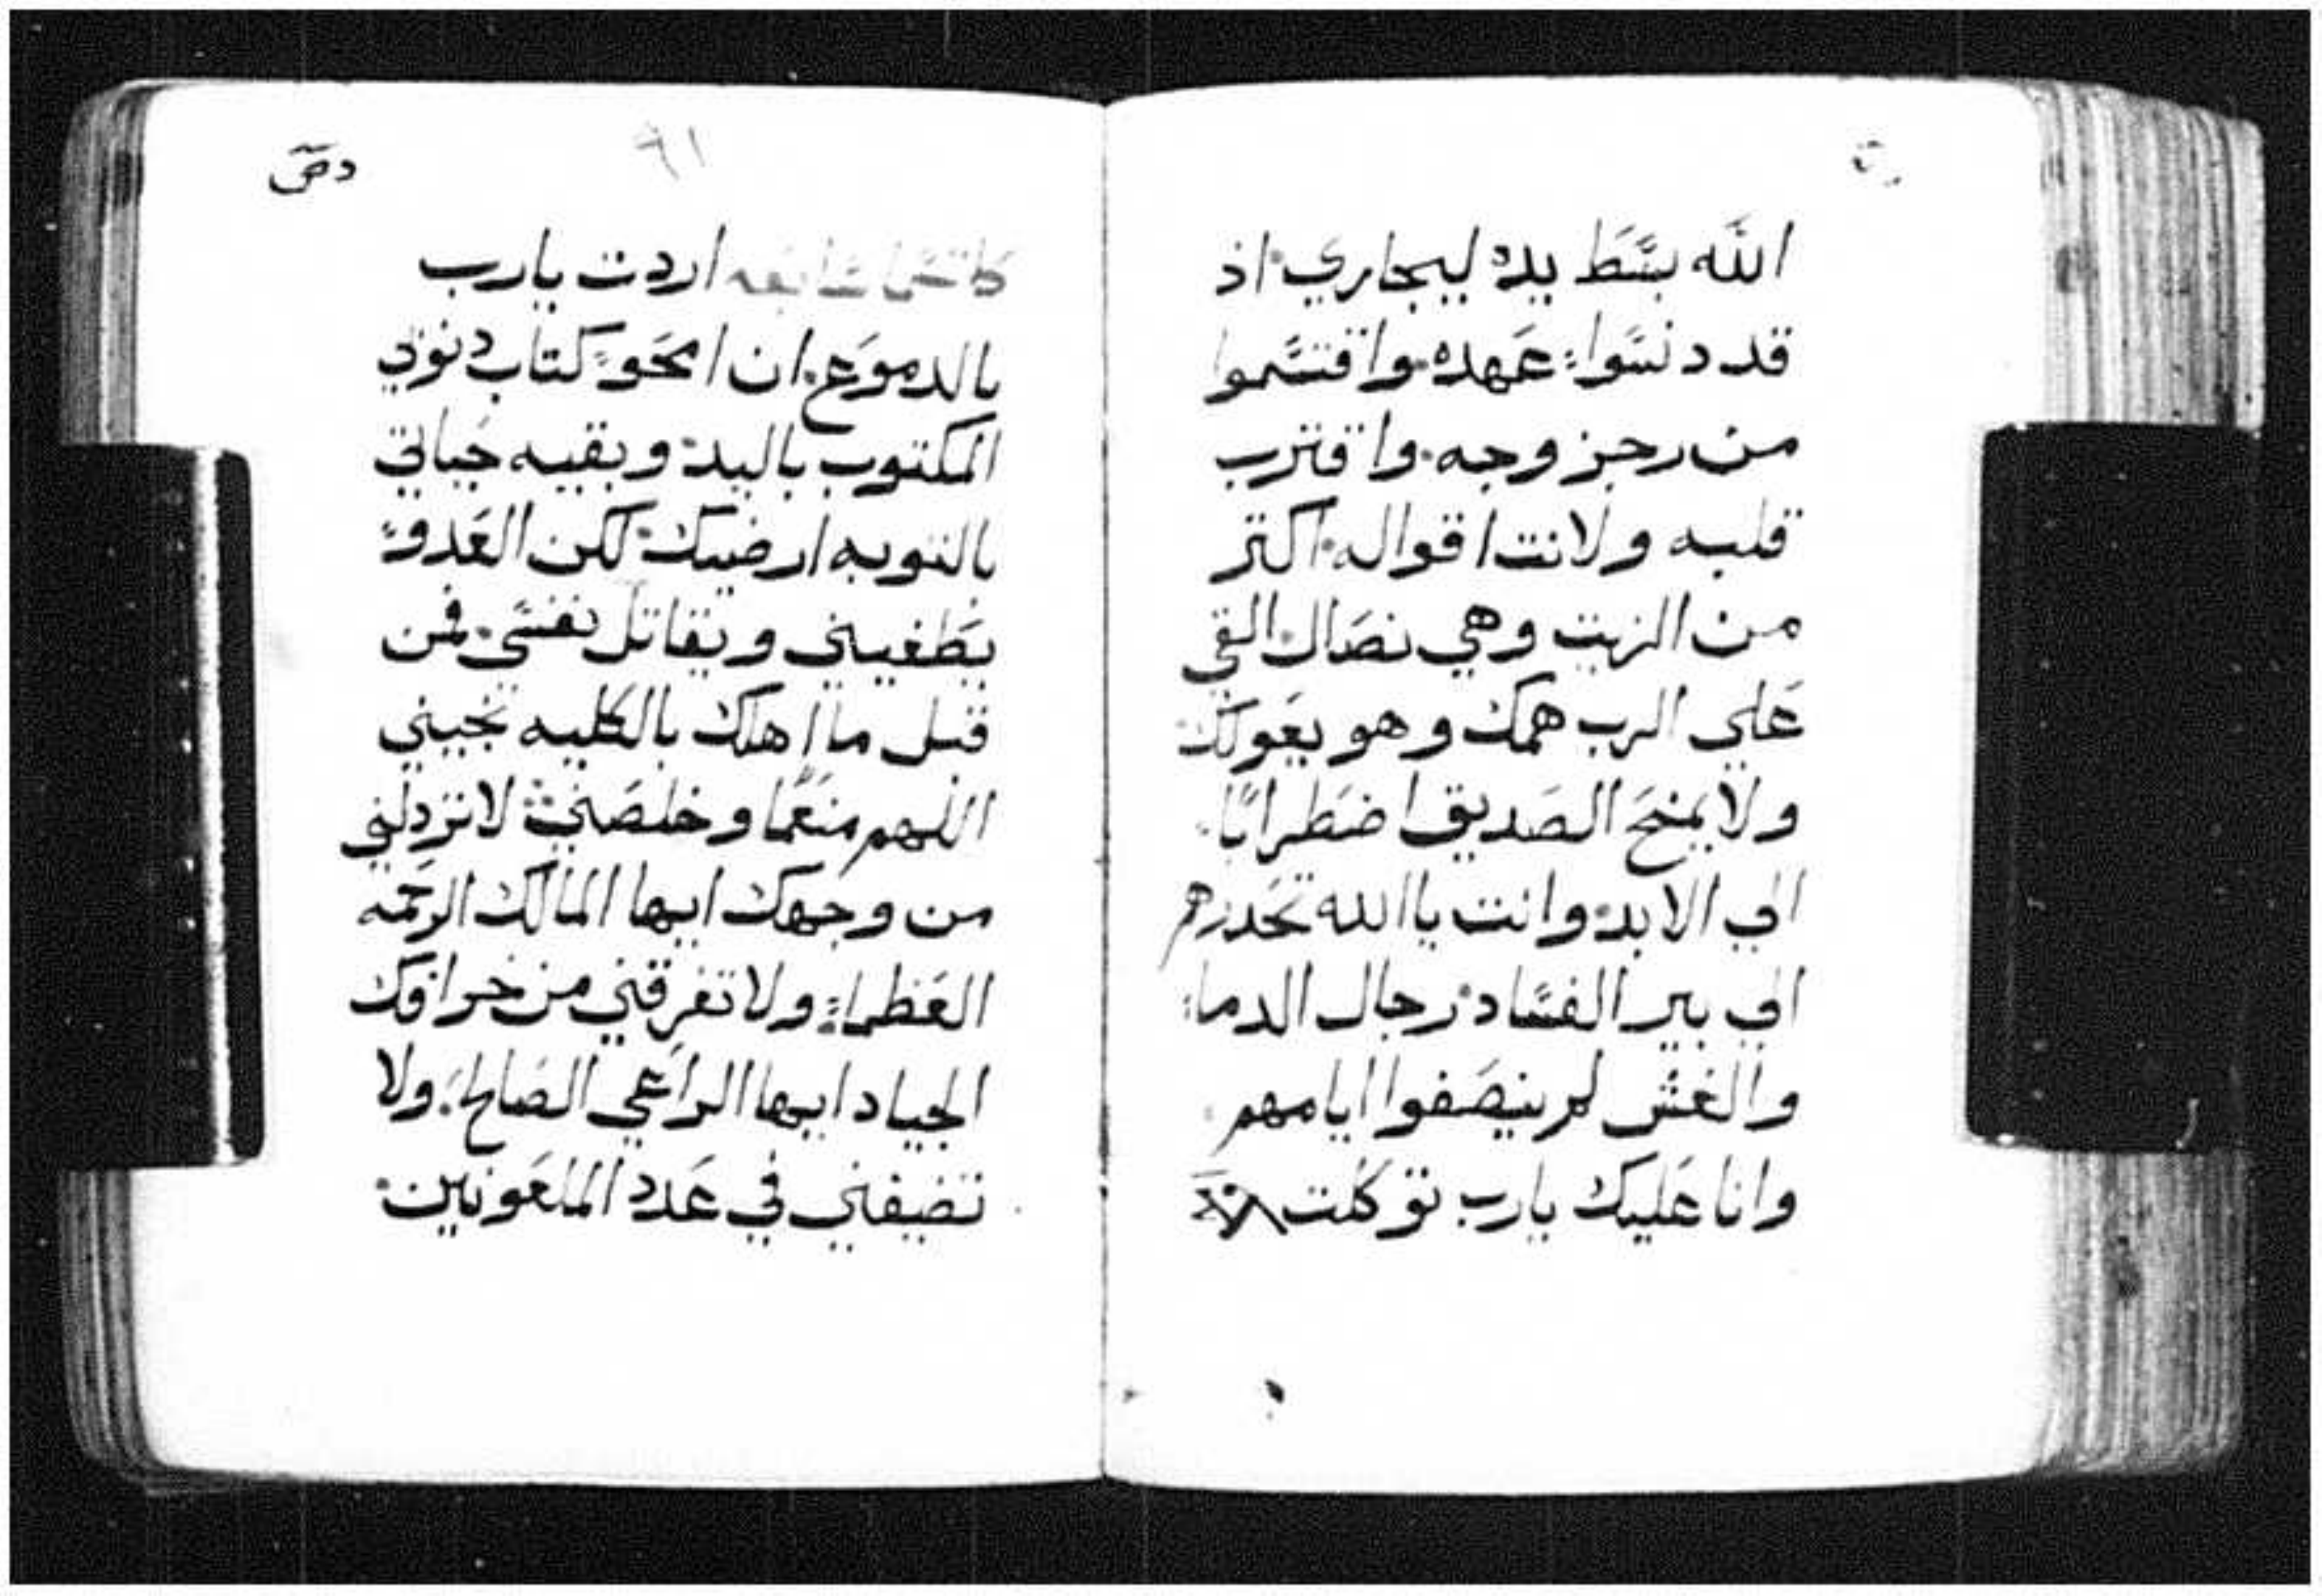 الله بسَط يده ليجاري اذ
قد دنسوا عَهده واقتسموا
من رجز وجهه واقترب
قلبه ولانت اقواله اكتر
من الزيت وهي نصَال القي
عَلي الرب همك وهو يعَولك
ولا يمنحَ الصَديق اضطرابًا
الي الابد وانت ياالله تحَدرهم
الي بير الفساد رجال الدما
والغش لم ينصَفوا ايامهم
وانا عَليك يارب توكلت
٩١
اردت يارب
بالدموعَ ان امحَو كتاب دنوبي
المكتوب باليد وبقيه حَياتي
بالتوبه ارضيك لكن العَدو
يطَغيني ويقاتل نفسي فمن
قبل ما اهلك بالكليه نجيني
اللهم منعَما وخلصَني لا تردلني
من وجهك ايها المالك الرحَمه
العَظما ولا تفرقني من خرافك
الجياد ايها الراعَي الصَالح ولا
تضيفني في عَدد الملعَونين